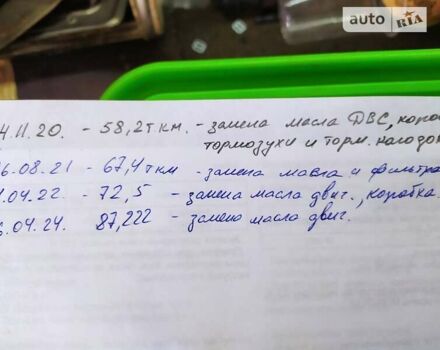 auto RIA
4.11.20. - 58,2т км. - замена масла ДВС, короб
тормозухи и торм. колодок
6.08.21 - 67,4 ткм - замена масла и фильтра
.04.22 - 72,5 - замена масла двиг., коробка.
6.04.24. 87,222 - замено масло двиг.